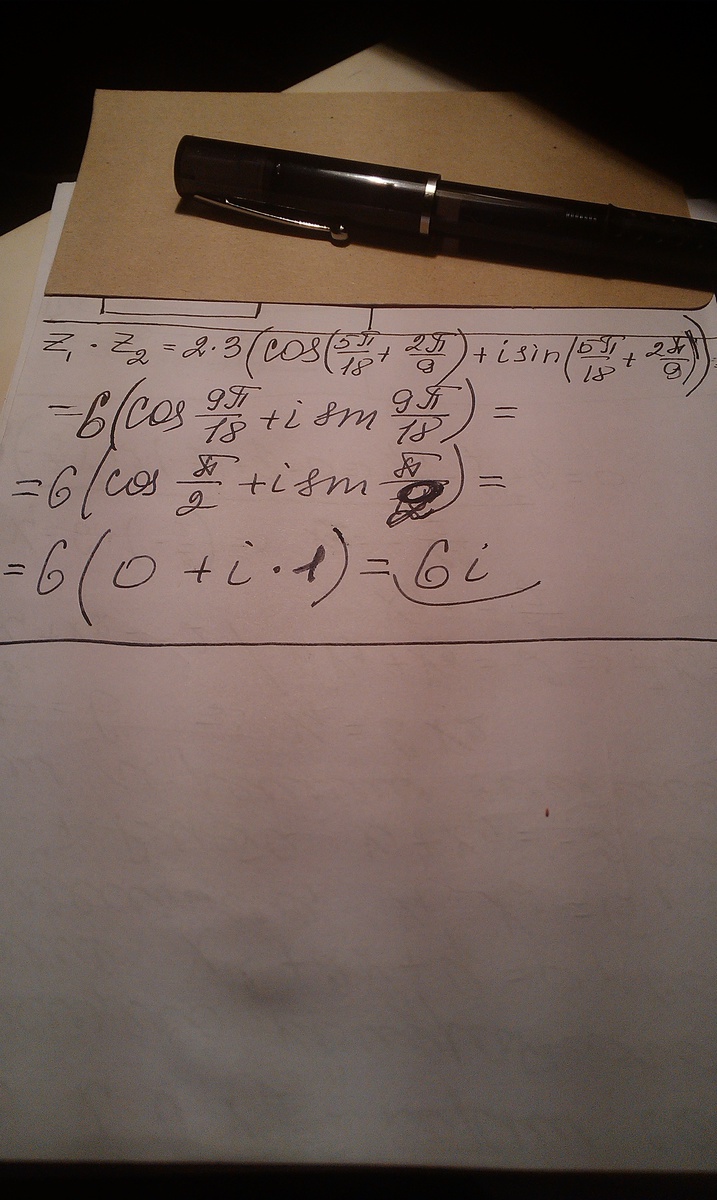 Z₁ · Z₂ = 2·3(cos(5π/18 + 2π/9) + i sin(5π/18 + 2π/9)) =
= 6(cos 9π/18 + i sin 9π/18) =
= 6(cos π/2 + i sin π/2) =
= 6(0 + i · 1) = 6i